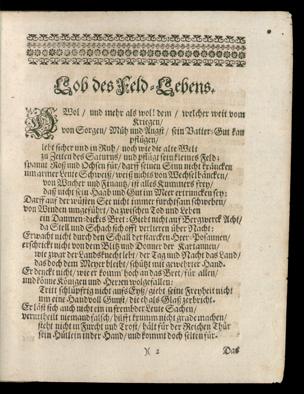 Lob des Feld-Lebens.
O Wol / und mehr als wol! dem / welcher weit vom
Kriegen /
von Sorgen / Müh und Angst / sein Vatter-Gut kan
pflügen /
lebt sicher und in Ruh / noch wie die alte Welt
zu Zeiten des Saturns / und pflügt sein kleines Feld:
spannt Roß und Ochsen für / darff seinen Sinn nicht kräncken
um armer Leute Schweiß / weiß nichts von Wechselbäncken /
von Wucher und Finantz / ist alles Kummers frey /
daß nicht sein Haab und Gut im Meer ertruncken sey;
Darff auf der wüsten See nicht immer furchtsam schweben /
von Winden umgeführt / da zwischen Tod und Leben
ein Daumen-dickes Bret: Giebt nicht auf Bergwerck Acht /
da Stoll und Schach sich offt verlieren über Nacht:
Erwacht nicht durch den Schall der starcken Heer-Posaunen /
erschrickt nicht vor dem Blitz und Donner der Kartaunen /
wie zwar der Landsknecht lebt / der Tag und Nacht das Land /
das doch dem Meyer bleibt / schützt mit gewehrter Hand.
Er dencket nicht / wie er komm' hoch an das Bret / für allen /
und könne Königen und Herren wolgefallen:
Tritt schlüpfrig nicht aufs Eyß / giebt seine Freyheit nicht
um eine Handvoll Gunst / die eh als Glaß zerbricht.
Er läst sich auch nicht ein in frembder Leute Sachen /
verurtheilt niemand falsch / hilfft krumm nicht grade machen /
steht nicht in Furcht und Trost / hält für der Reichen Thür
sein Hütlein in der Hand / und kommt doch selten für-
)( 2
Das